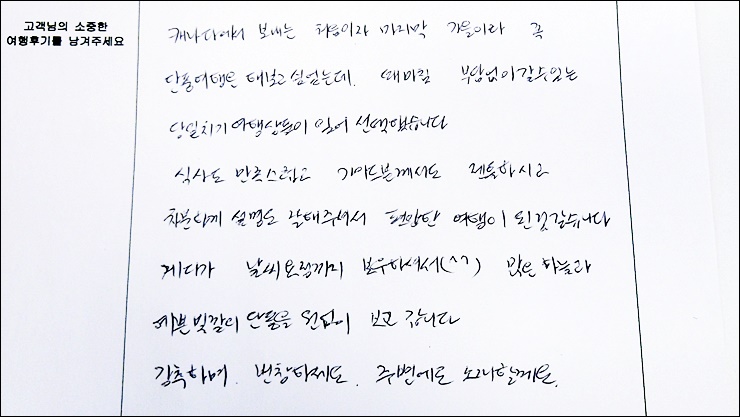 고객님의 소중한
여행후기를 남겨주세요
캐나다에서 보내는 처음이자 마지막 가을이라 꼭
단풍여행은 해보고 싶었는데, 때마침 부담없이 갈수있는
당일치기 여행상품이 있어 선택했습니다
식사도 만족스럽고 가이드분께서도 젠틀하시고
차분하게 설명도 잘해주셔서 편안한 여행이 된것같습니다
게다가 날씨요정까지 보우하셔서(^^) 맑은 하늘과
예쁜 빛깔의 단풍을 원없이 보고 갑니다
강추하며, 번창하세요. 주변에도 소개할게요.